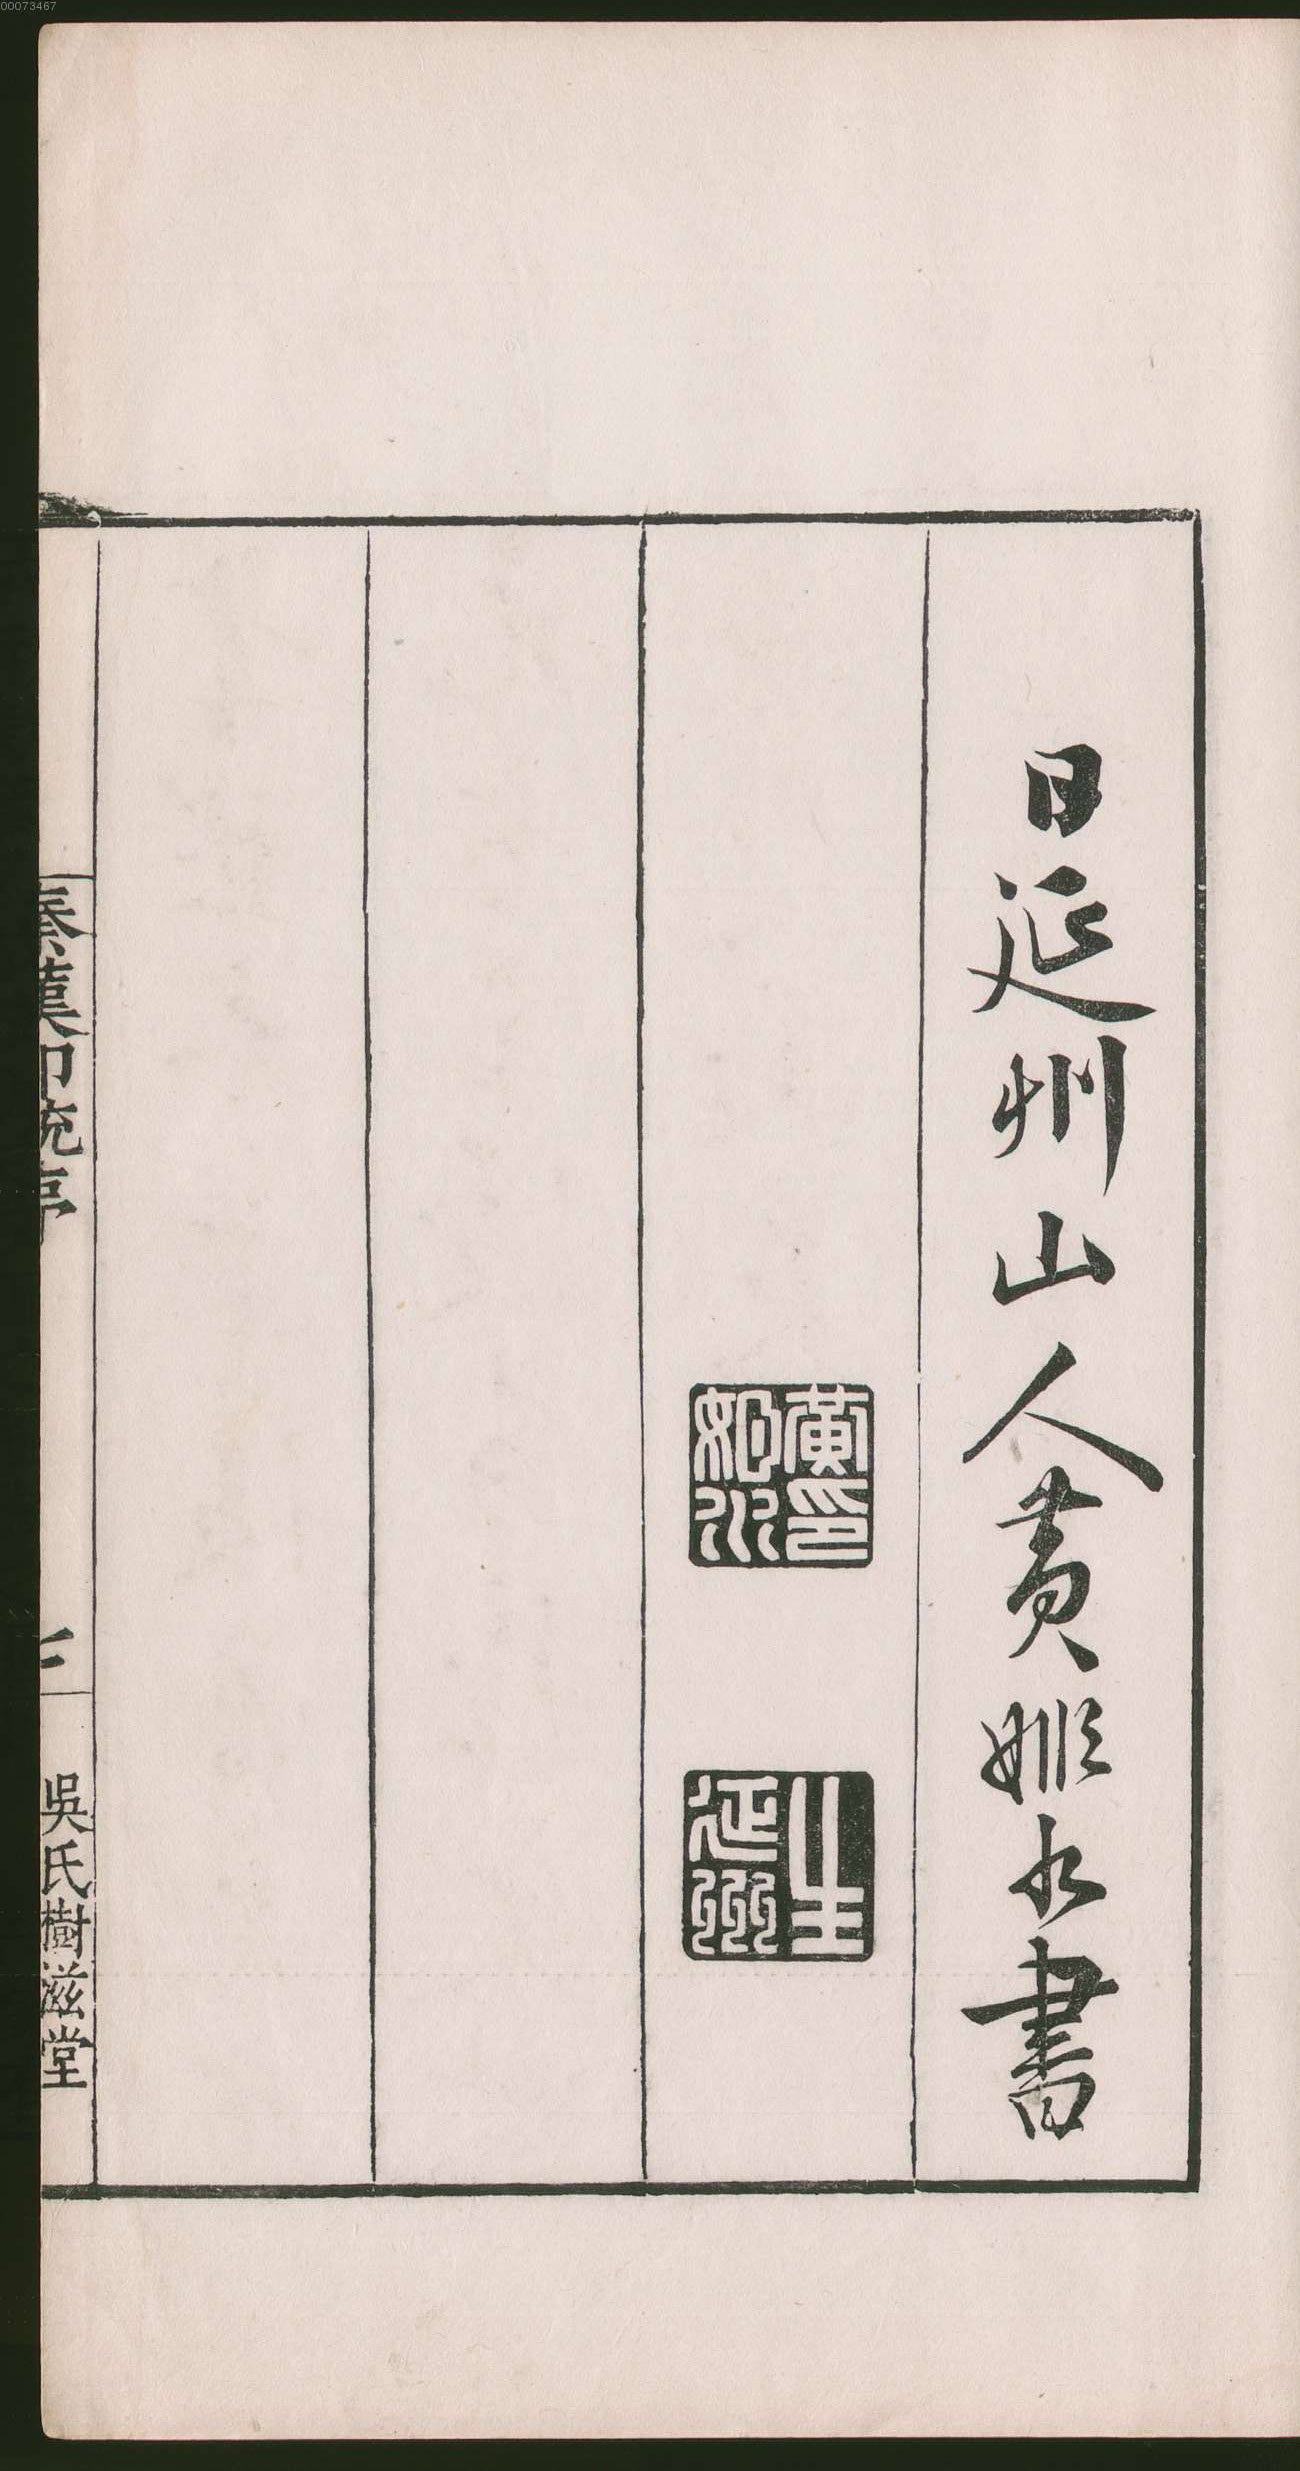 00073467
日延州山人黃姬水書
黃印姬水
延州
秦漢印統序
三
吳氏樹滋堂